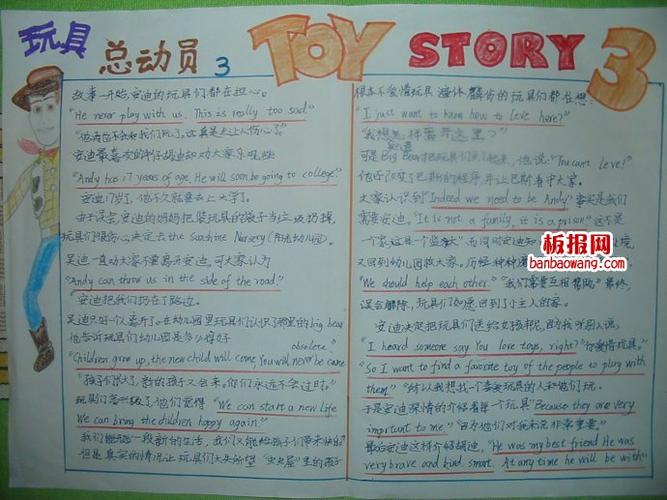 玩具
总动员 3
TOY STORY 3
故事一开始,安迪的玩具们都在担心。
"He never play with us. This is really too sad"
"他再也不会和我们玩了,这真是太让人伤心了"
安迪最喜欢的牛仔胡迪
"Andy has 17 years of age, He will soon be going to college"
安迪17岁了,他不久就要去上大学了。
由于误会,安迪的妈妈把装玩具的袋子当垃圾扔掉,
玩具们很伤心决定去the sunshine Nursery(阳光幼儿园)。
吴迪一直劝大家不要离开安迪,可大家认为
"Andy can throw us in the side of the road."
安迪把我们扔在了路边。
吴迪只好一个人离开了。在幼儿园里玩具们认识了那里的big bear
他告诉玩具们幼儿园是多么得好
obsolete."
"Children grew up, the new child will come You will never be came
"孩子们长大,新的孩子又会来,你们永远不会过时。"
玩具们 他们觉得 "We can start a new life
We can bring the children happy again."
我们能 一段新的生活,我们又能给孩子们带来快乐
但是真实的情况让玩具们大失所望 里的孩子
根本不爱惜玩具 遍体鳞伤的玩具们都在想:
"I just want to know how to leve here?"
"我想 离开这里?"
可是Big Bear把玩具们 了起来,他说:"You can't leve!"
他还改 巴斯的程序,并让巴斯看守大家。
大家认识到"Indeed we need to be Andy" 我们
需要安迪,"It is not a family, it is a prison"这不是
一个家这是一个监狱"而同时安迪知
板报网
banbaowang.com
又回到幼儿园救大家。历经种种
"We should help each other." "我们需要互相帮助"最终,
误会解除,玩具们如愿回到了小主人的家。
安迪决定把玩具们送给 ,因为我听别人说,
"I heard someone say You love toys, right?"你爱惜玩具。"
"So I want to find a favorite toy of the people to play with
them" 所以我想找一个喜爱玩具的人和他们玩。
于是安迪深情的介绍着每一个玩具"Because they are very
important to me" "因为他们对我来说非常重要"
最后安迪这样介绍胡迪,"He was my best friend He was
very brave and kind smart. At any time he will be with"